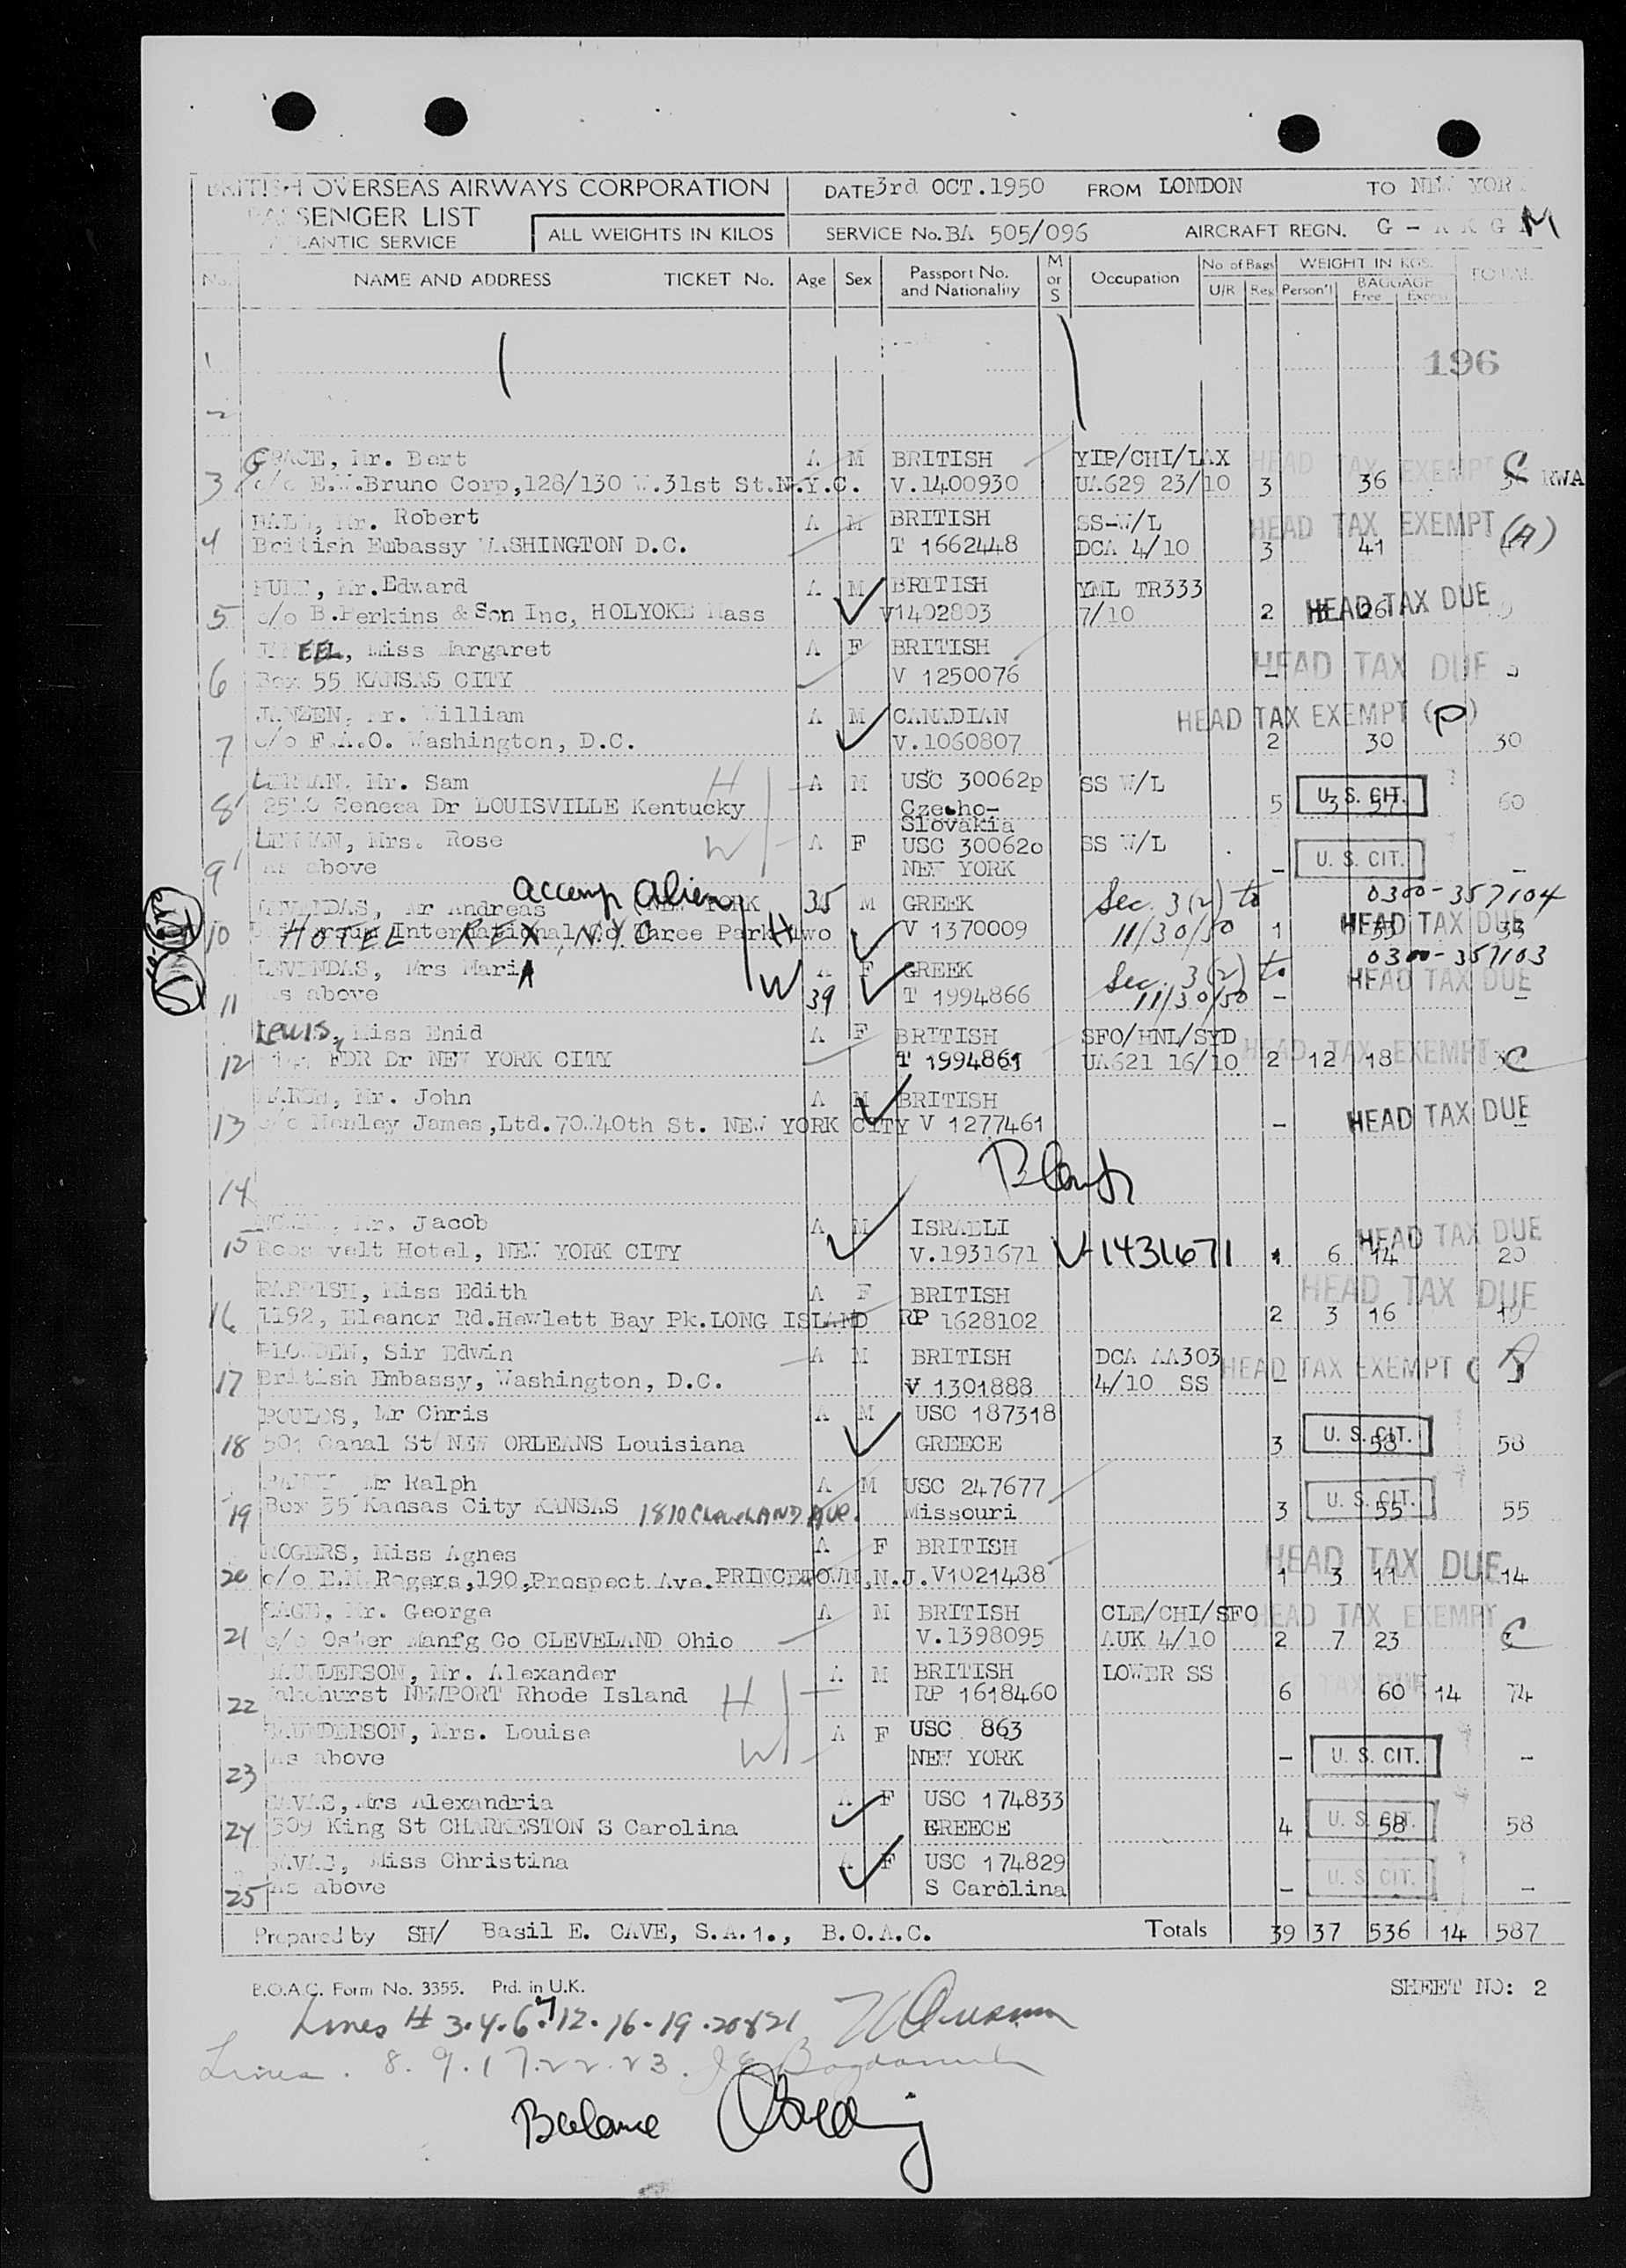 BRITISH OVERSEAS AIRWAYS CORPORATION
PASSENGER LIST
ATLANTIC SERVICE
ALL WEIGHTS IN KILOS
DATE 3rd OCT.1950 FROM LONDON TO NEW YORK
SERVICE No. BA 505/096 AIRCRAFT REGN. G - M
No. NAME AND ADDRESS TICKET No. Age Sex Passport No. and Nationality M or S Occupation No of Bags U/R Reg WEIGHT IN KGS. Person'l BAGGAGE Free Excess TOTAL
1
196
2
GRACE, Mr. Bert A M BRITISH YIP/CHI/LAX HEAD TAX EXEMPT C
3 c/o E.W.Bruno Corp,128/130 W.31st St.N.Y.C. V.1400930 UA629 23/10 3 36 RWA
Mr. Robert A M BRITISH SS-W/L HEAD TAX EXEMPT (A)
4 British Embassy WASHINGTON D.C. T 1662448 DCA 4/10 3 41
Mr. Edward A M BRITISH YML TR333
5 c/o B.Perkins & Son Inc, HOLYOKE Mass V1402803 7/10 2 26 HEAD TAX DUE
EEL, Miss Margaret A F BRITISH
6 Box 55 KANSAS CITY V 1250076 - HEAD TAX DUE
JANZEN, Mr. William A M CANADIAN HEAD TAX EXEMPT (P)
7 c/o F.A.O. Washington, D.C. V.1060807 2 30 30
LERMAN, Mr. Sam H A M USC 30062p SS W/L
8 Seneca Dr LOUISVILLE Kentucky Czecho-Slovakia 5 3 57 U. S. CIT. 60
LERMAN, Mrs. Rose W A F USC 30062o SS W/L
9 As above NEW YORK - U. S. CIT. -
accomp alien
LEVENDAS, Mr Andreas (NEW YORK 35 M GREEK Sec. 3(2) to 0300-357104
10 HOTEL REX, NYC International Co Three Park Two H V 1370009 11/30/50 1 33 HEAD TAX DUE 33
LEVENDAS, Mrs MariA A F GREEK Sec. 3(2) to 0300-357103
11 As above W 39 T 1994866 11/30/50 - HEAD TAX DUE -
Lewis, Miss Enid A F BRITISH SFO/HNL/SYD
12 FDR Dr NEW YORK CITY T 1994861 UA621 16/10 2 12 18 HEAD TAX EXEMPT C
MARSH, Mr. John A M BRITISH
13 c/o Henley James,Ltd.70 40th St. NEW YORK CITY V 1277461 - HEAD TAX DUE -
Blank
14
Mr. Jacob A M ISRAELI HEAD TAX DUE
15 Roosevelt Hotel, NEW YORK CITY V.1931671 V-1431671 1 6 14 20
PARRISH, Miss Edith A F BRITISH HEAD TAX DUE
16 1192, Eleanor Rd.Hewlett Bay Pk.LONG ISLAND RP 1628102 2 3 16 19
PLOWDEN, Sir Edwin A M BRITISH DCA AA303 HEAD TAX EXEMPT (
17 British Embassy, Washington, D.C. V 1301888 4/10 SS -
POULOS, Mr Chris A M USC 187318
18 501 Canal St NEW ORLEANS Louisiana GREECE 3 U. S. CIT. 58 58
Mr Ralph A M USC 247677
19 Box 55 Kansas City KANSAS 1810 CleveLAND AVE. Missouri 3 U. S. CIT. 55 55
ROGERS, Miss Agnes A F BRITISH HEAD TAX DUE
20 c/o E.M Rogers,190,Prospect Ave.PRINCETOWN,N.J. V1021438 1 3 11 14
SAGE, Mr. George A M BRITISH CLE/CHI/SFO HEAD TAX EXEMPT
21 c/o Oster Manfg Co CLEVELAND Ohio V.1398095 AUK 4/10 2 7 23 C
SAUNDERSON, Mr. Alexander A M BRITISH LOWER SS
22 Oakehurst NEWPORT Rhode Island H RP 1618460 6 TAX DUE 60 14 74
SAUNDERSON, Mrs. Louise A F USC 863
23 As above W NEW YORK - U. S. CIT. -
SAVAS, Mrs Alexandria A F USC 174833
24 309 King St CHARKESTON S Carolina GREECE 4 U. S. CIT. 58 58
SAVAS, Miss Christina A F USC 174829
25 As above S Carolina - U. S. CIT. -
Prepared by SH/ Basil E. CAVE, S.A.1., B.O.A.C. Totals 39 37 536 14 587
B.O.A.C. Form No. 3355. Ptd. in U.K. SHEET NO: 2
Lines # 3.4.6.7.12.16.19.20&21
Lines. 8.9.17.22.23.
Balance